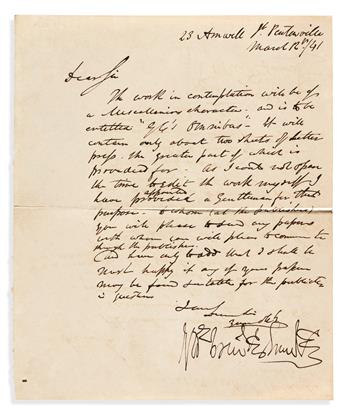 23 Amwell St. Pentonville
March 12th/41
Dear Sir
The work in contemplation will be of
a Miscellaneous character and is to be
entitled "G C's Omnibus". It will
contain only about two sheets of letter
press. the greater part of which is
provided for. As I could not spare
the time to edit the work myself I
have appointed provided a Gentleman for that
purpose. to whom (at the publishers)
you will please to send any papers
with whom you will please to commu
through the publishers
and have only to add that I shall be
most happy if any of your papers
may be found suitable for the publication
in question
I am